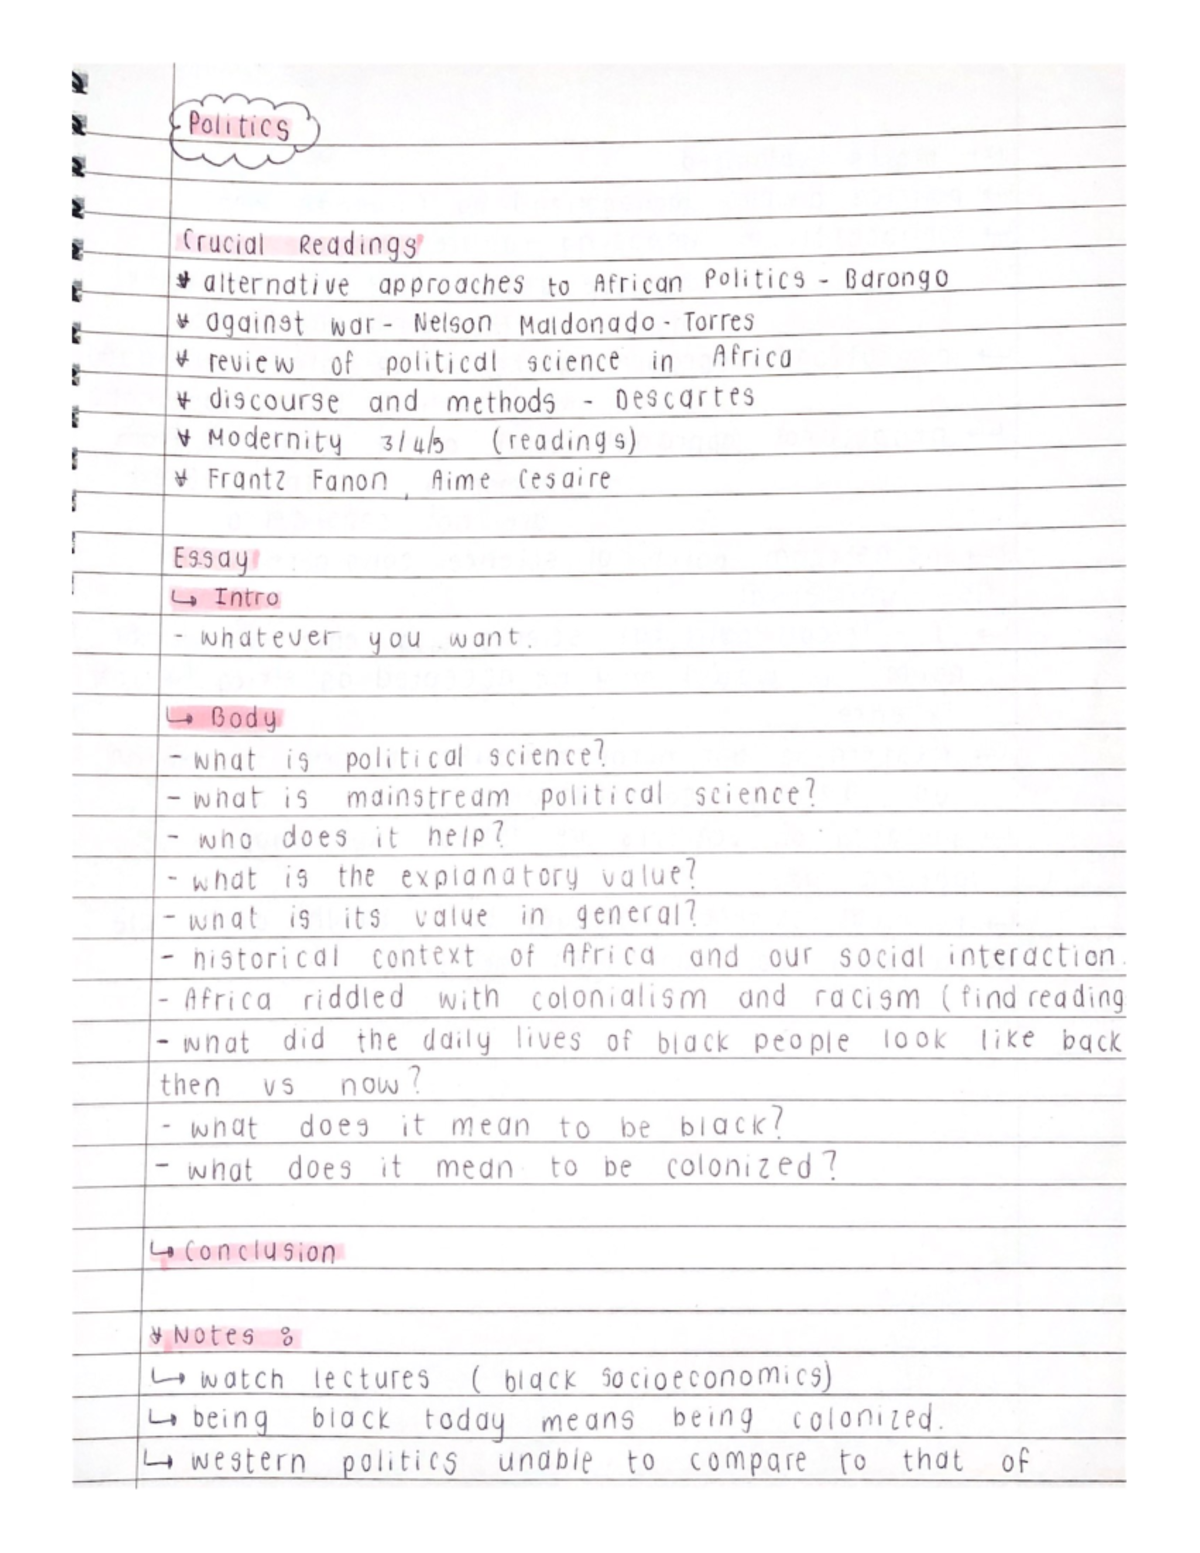 Politics
Crucial Readings
* alternative approaches to African Politics - Barongo
* against war - Nelson Maldonado - Torres
* review of political science in Africa
* discourse and methods - Descartes
* Modernity 3/4/5 (readings)
* Frantz Fanon, Aime Cesaire
Essay
↳ Intro
- whatever you want.
↳ Body
- what is political science?
- what is mainstream political science?
- who does it help?
- what is the explanatory value?
- what is its value in general?
- historical context of Africa and our social interaction.
- Africa riddled with colonialism and racism (find reading
- what did the daily lives of black people look like back
then vs now?
- what does it mean to be black?
- what does it mean to be colonized?
↳ Conclusion
* Notes :
↳ watch lectures (black socioeconomics)
↳ being black today means being colonized.
↳ western politics unable to compare to that of